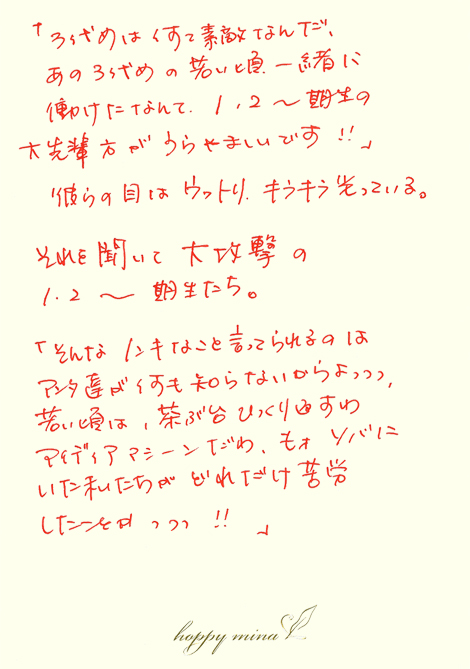 「3代めは何て素敵なんだ、
あの3代めの若い頃一緒に
働けたなんて、1、2〜期生の
大先輩方がうらやましいです!!」
彼らの目はウットリ、キラキラ光っている。
それを聞いて大攻撃の
1、2〜期生たち。
「そんなノンキなこと言ってられるのは
アンタ達が何も知らないからよっっっ、
若い頃は、茶ぶ台ひっくり返すわ
アイディアマシーンだわ、もォソバに
いた私たちがどれだけ苦労
したことかっっっ!!」
happy mina